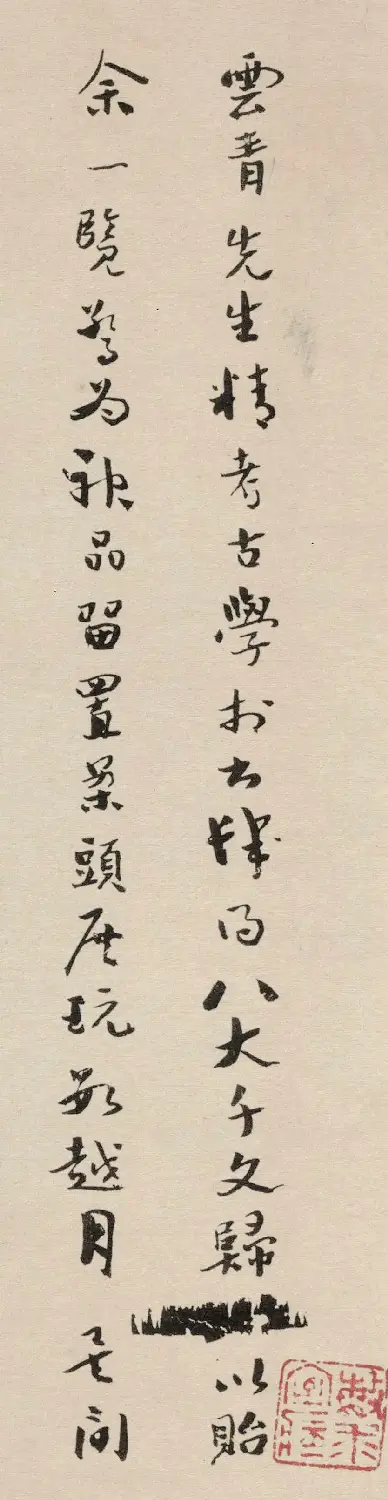 雲青先生精考古學於書肆得八大千文歸以貽
余一覽驚為神品留置案頭展玩數越月其間